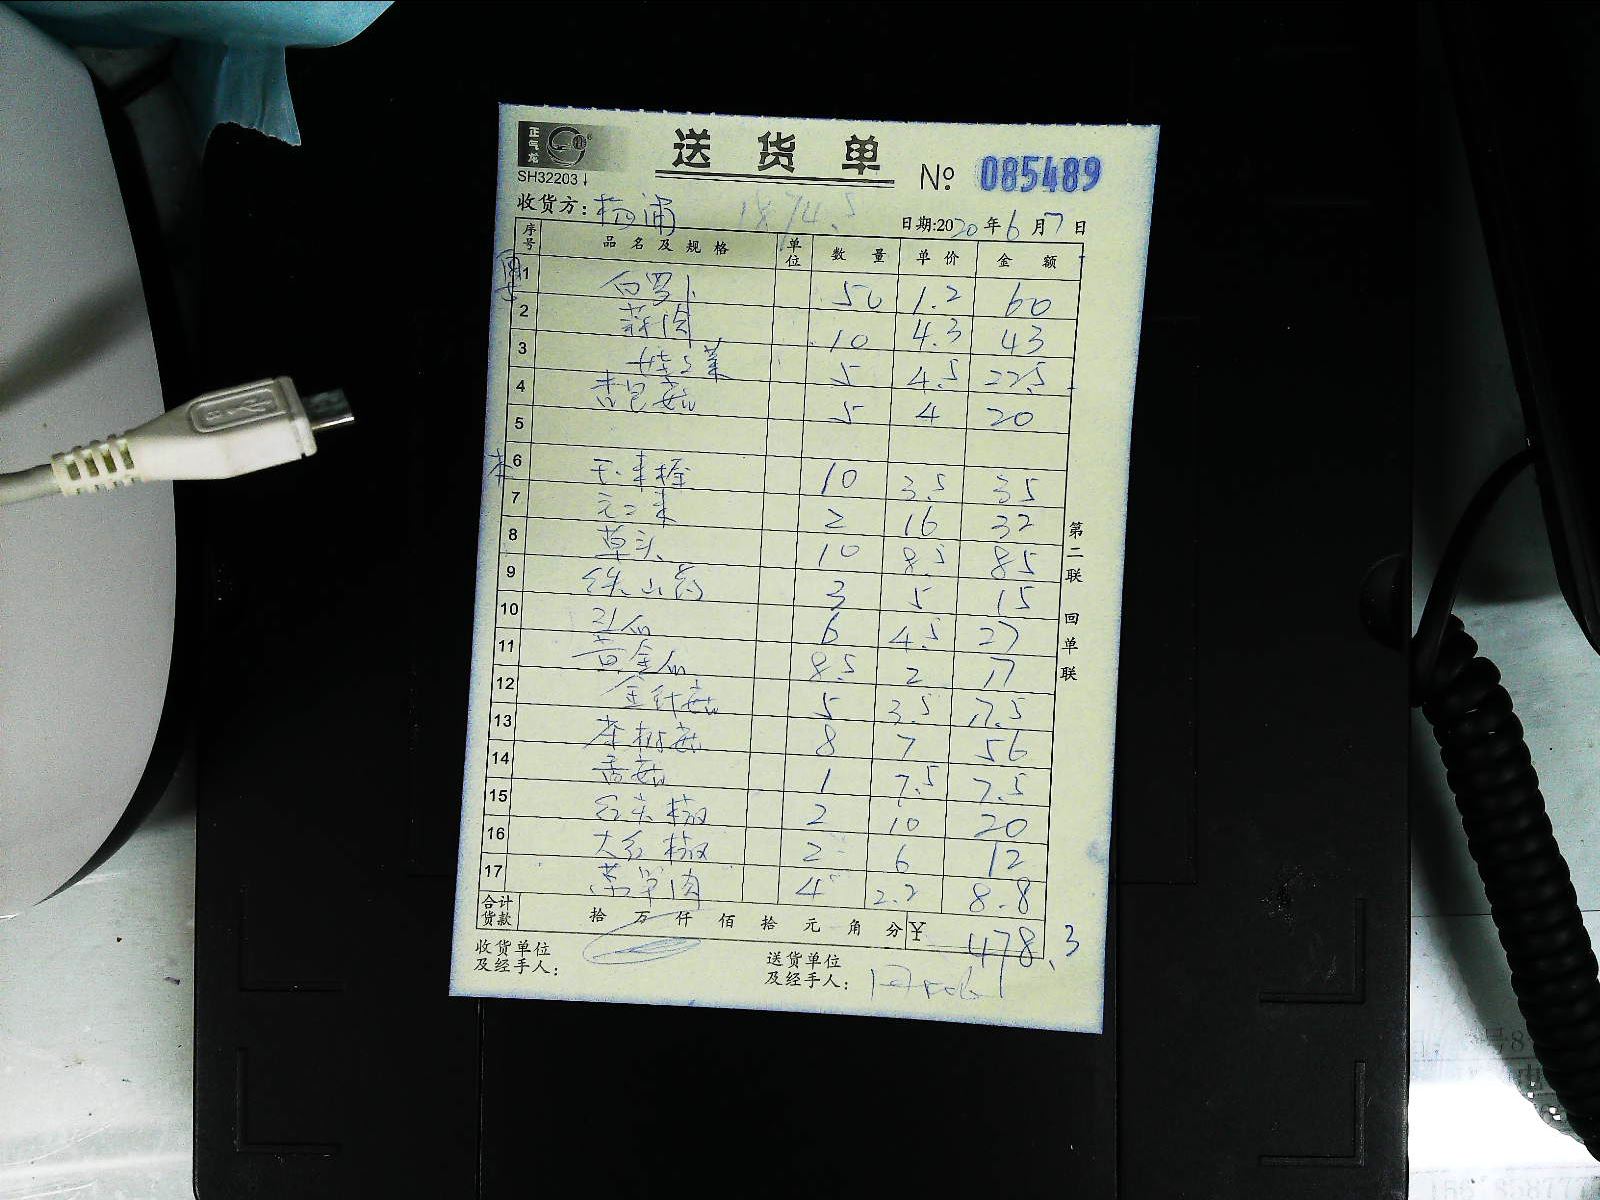 正气龙
送货单
SH32203
No 085489
收货方: 杨浦 1874.5
日期:2020年6月7日
序号 品名及规格 单位 数量 单价 金额
1 白罗卜 50 1.2 60
2 蒜肉 10 4.3 43
3 娃娃菜 5 4.5 22.5
4 杏包菇 5 4 20
5
6 玉米棒 10 3.5 35
7 2 16 32
8 草头 10 8.5 85
9 铁山药 3 5 15
10 6 4.5 27
11 黄金瓜 8.5 2 17
12 金针菇 5 3.5 17.5
13 茶树菇 8 7 56
14 香菇 1 7.5 7.5
15 红尖椒 2 10 20
16 大红椒 2 6 12
17 莴笋肉 4 2.2 8.8
合计货款 拾 万 仟 佰 拾 元 角 分 ¥ 478.3
收货单位及经手人:
送货单位及经手人:
第二联 回单联